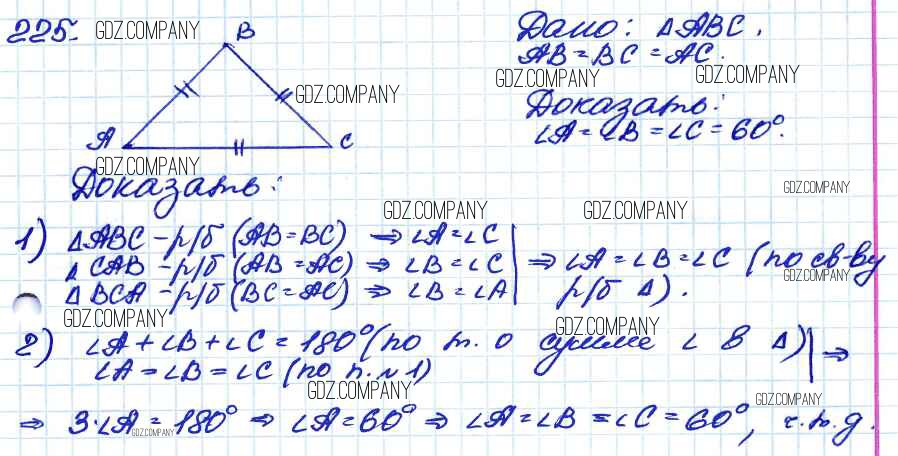 225. GDZ.COMPANY
B
A
C
GDZ.COMPANY
GDZ.COMPANY
Дано: ΔABC,
AB = BC = AC.
GDZ.COMPANY GDZ.COMPANY
Доказать:
∠A = ∠B = ∠C = 60°.
Доказать:
GDZ.COMPANY
GDZ.COMPANY GDZ.COMPANY
1) ΔABC – р/б (AB = BC) ⇒ ∠A = ∠C
ΔCAB – р/б (AB = AC) ⇒ ∠B = ∠C ⇒ ∠A = ∠B = ∠C (по св-ву
GDZ.COMPANY
ΔBCA – р/б (BC = AC) ⇒ ∠B = ∠A р/б Δ).
GDZ.COMPANY GDZ.COMPANY
2) ∠A + ∠B + ∠C = 180° (по т. о сумме ∠ в Δ) ⇒
∠A = ∠B = ∠C (по п. №1)
GDZ.COMPANY GDZ.COMPANY
⇒ 3·∠A = 180° ⇒ ∠A = 60° ⇒ ∠A = ∠B = ∠C = 60°, ч.т.д.
GDZ.COMPANY